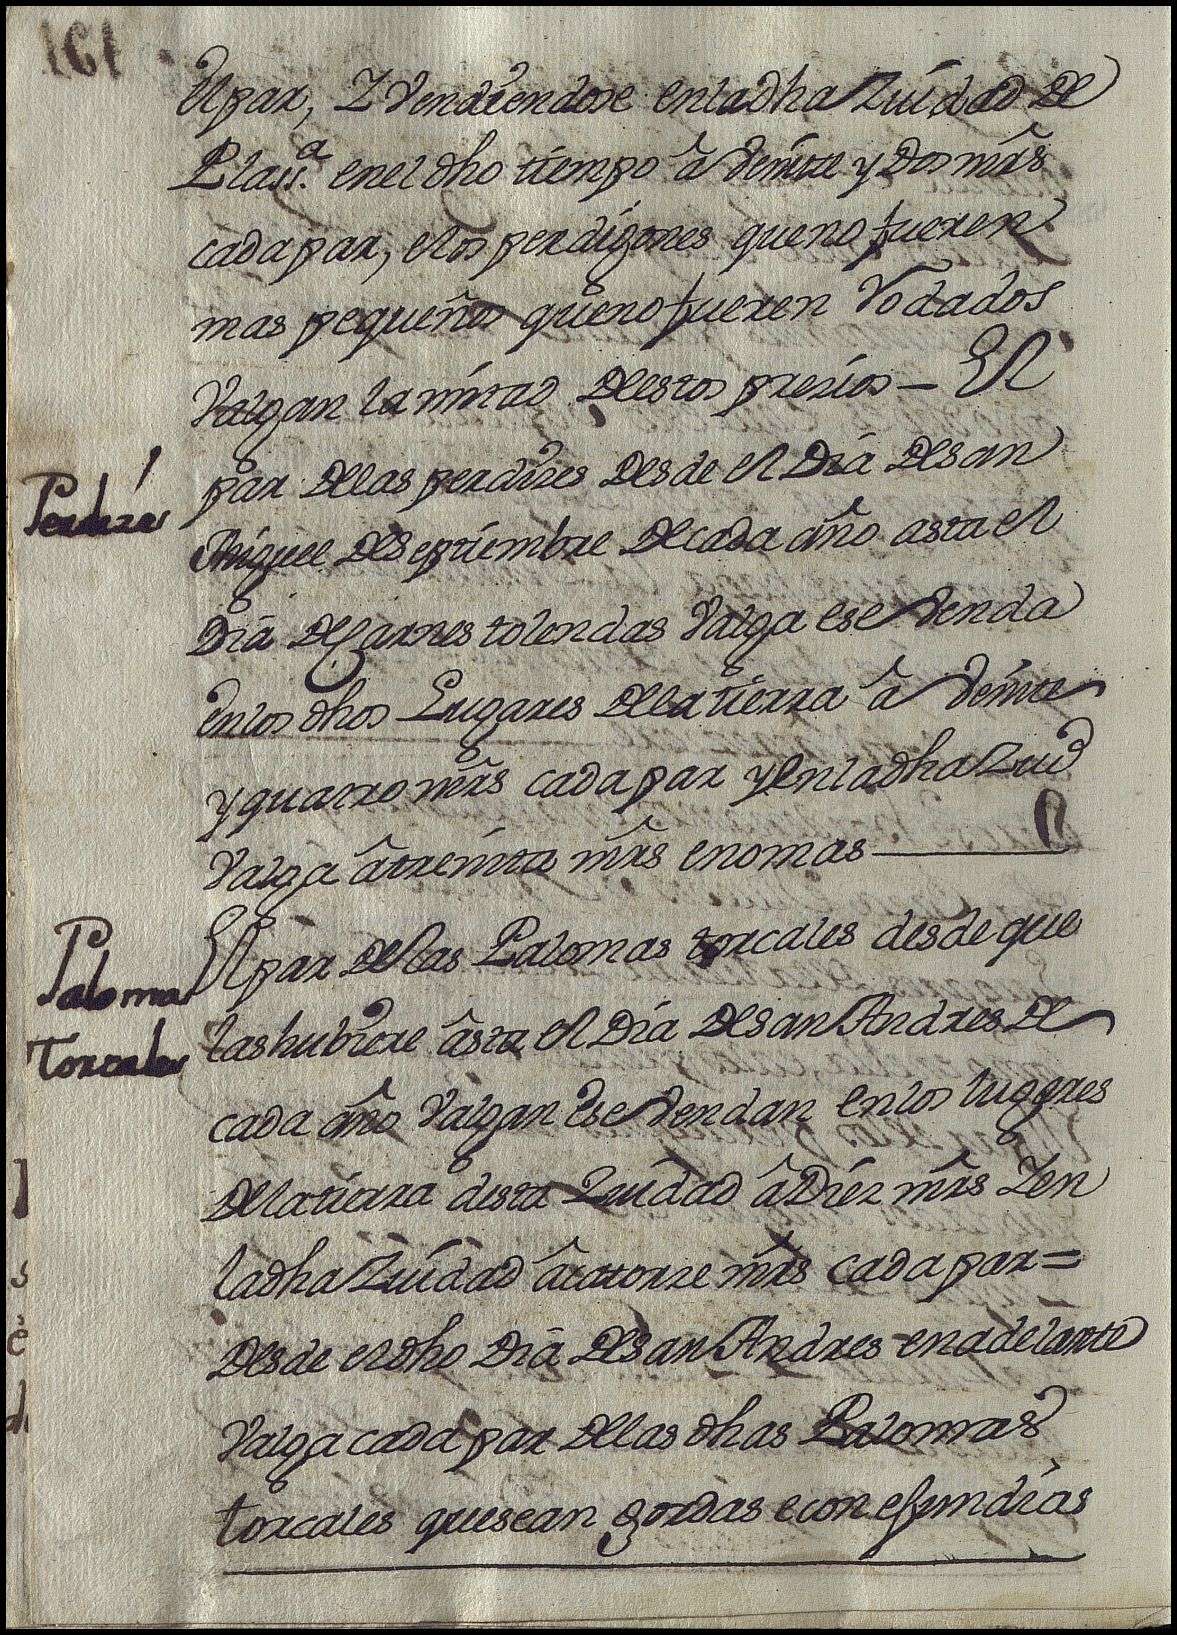 el par, Z Vendiendose enladha Zuidad de
Plas.ª enel dho tiempo â veinte y dos mrs̃
cada par, elos perdigones queno fueren
mas pequeños queno fueren Vodados
Valgan lamitad destos prezios — El
Perdizes
par delas perdizes desde el Dia desan
Miguel deSeptiembre decada año asta el
Dia deCarnestolendas Valga ese venda
enlos dhos Lugares dela tierra â veinte
y quatro mrs̃ cada par y enladha Zuid
Valga âtreinta mrs̃ enomas
Palomas
Torcales
El par delas Palomas torcales desde que
las hubiere âsta el Dia desan Andres de
cada año Valgan ese vendan enlos lugares
delatierra desta Zuidad â Diez mrs̃ Zen
ladha Zuidad âcatorze mrs̃ cada par=
desde eldho Dia desan Andres enadelante
Valga cada par delas dhas Palomas
torcales quesean gordas econ esundias